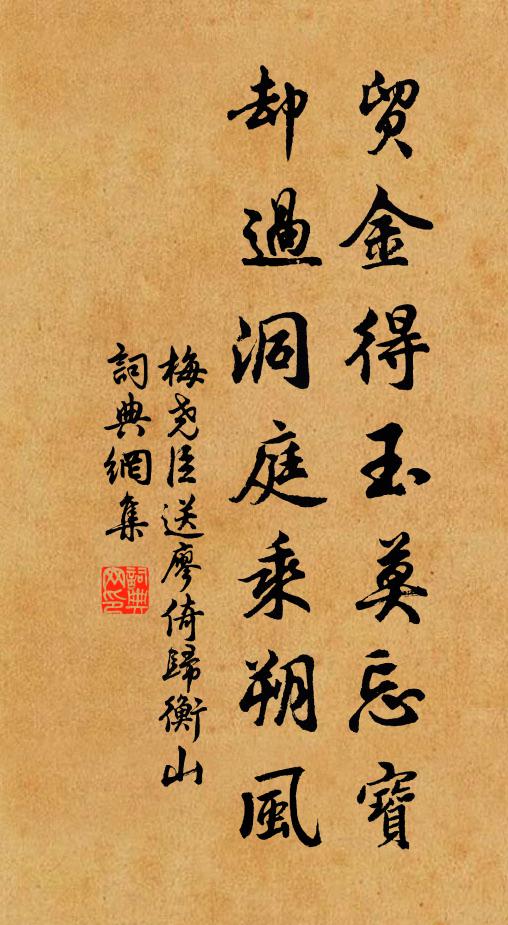 貿金得玉莫忘寶
却過洞庭乘朔風
梅堯臣送廖倚歸衡山
詞典網集
詞典網印